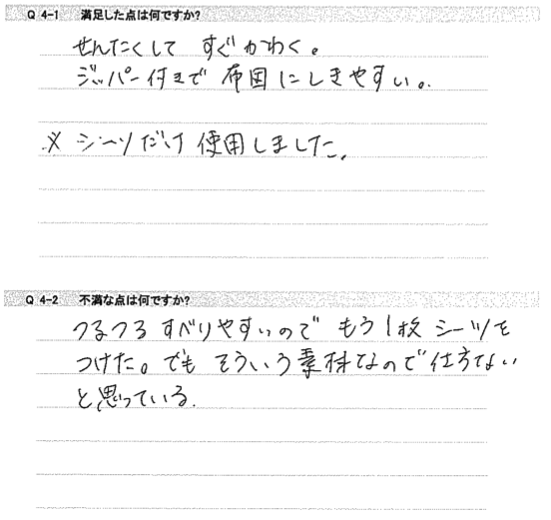 Q 4-1 満足した点は何ですか?
せんたくして すぐかわく。
ジッパー付きで 布団にしきやすい。
※ シーツだけ 使用しました。
Q 4-2 不満な点は何ですか?
つるつる すべりやすいので もう1枚 シーツを
つけた。でも そういう素材なので仕方ない
と思っている.